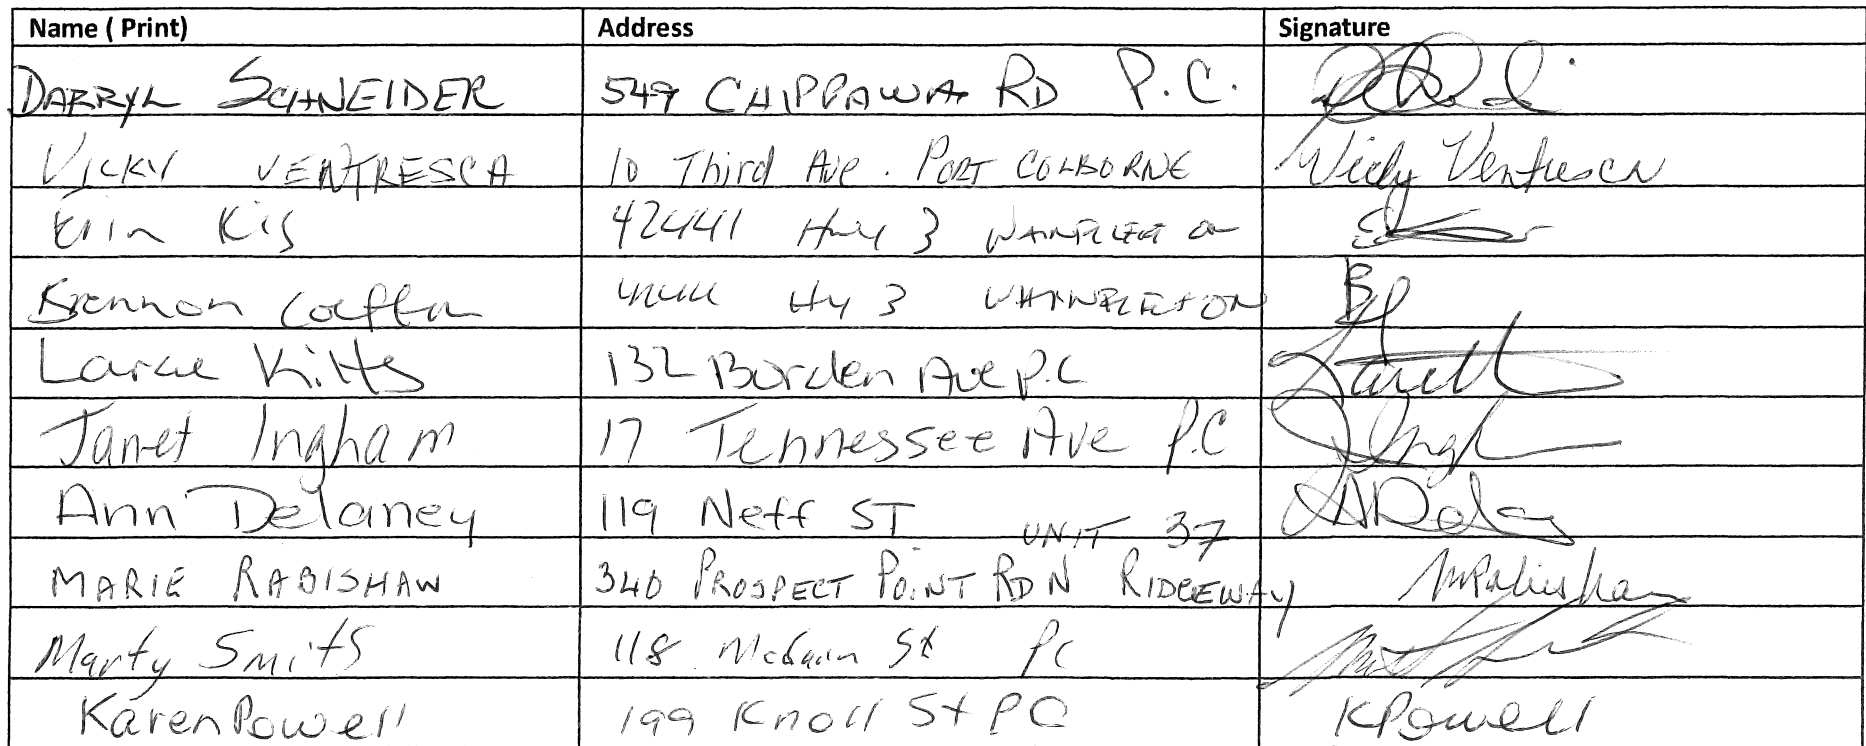 Name ( Print) Address Signature
DARRYL SCHNEIDER 549 CHIPPAWA RD P.C.
VICKY VENTRESCA 10 Third Ave. PORT COLBORNE Vicky Ventresca
Erin Kis 42441 Hwy 3 WAINFLEET ON
Brennon Hy 3 ON
Kitts 132 Borden Ave P.C
Janet Ingham 17 Tennessee Ave P.C
Ann Delaney 119 Neff ST UNIT 37 ADelaney
MARIE RABISHAW 340 PROSPECT POINT RD N RIDGEWAY MRabishaw
Marty Smits 118 St PC
Karen Powell 199 Knoll St PC KPowell